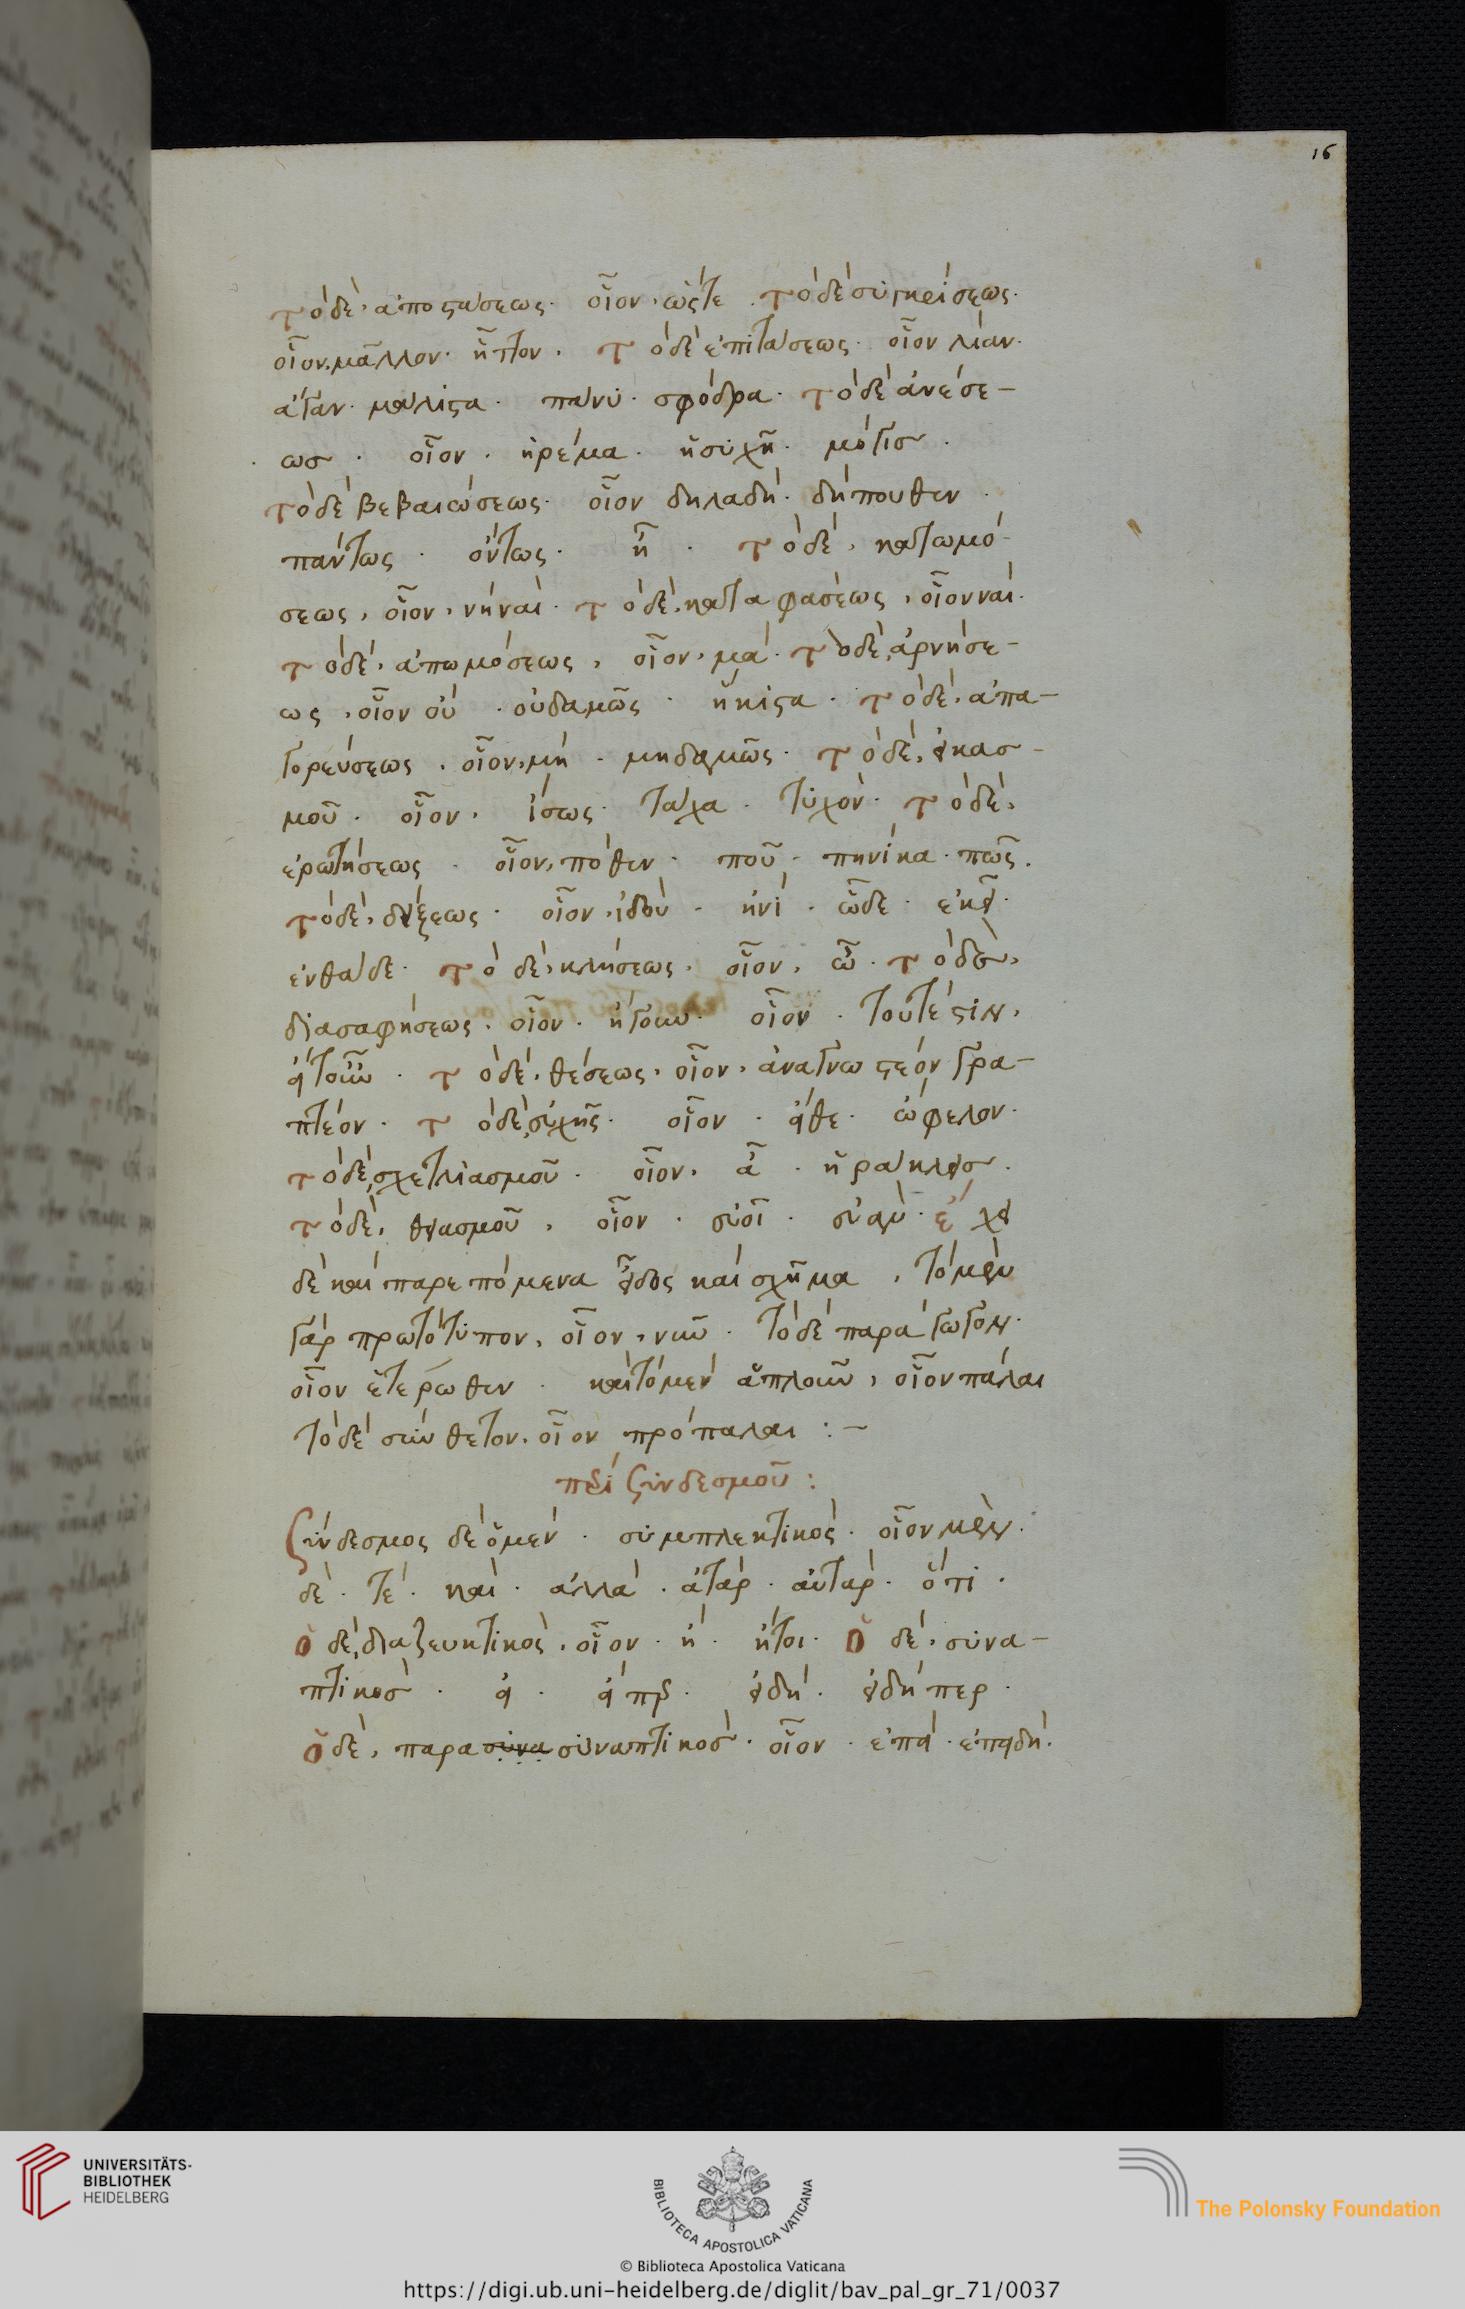 16
τὸ δὲ, ἀποστάσεως· οἷον, ὥστε. τὸ δὲ συγκρίσεως·
οἷον, μᾶλλον· ἧττον. τὸ δὲ ἐπιτάσεως· οἷον λίαν·
ἄγαν· μάλιστα· πάνυ· σφόδρα· τὸ δὲ ἀνέσε-
ως· οἷον· ἠρέμα· ἡσυχῆ· μόγις·
τὸ δὲ βεβαιώσεως· οἷον δηλαδή· δήπουθεν·
πάντως· ὄντως· ἦ· τὸ δὲ, κατωμό-
σεως, οἷον, νή ναί· τὸ δὲ, καταφάσεως, οἷον ναί·
τὸ δὲ, ἀπωμόσεως, οἷον, μά· τὸ δὲ, ἀρνήσε-
ως, οἷον οὐ· οὐδαμῶς· ἥκιστα· τὸ δὲ, ἀπα-
γορεύσεως, οἷον, μή· μηδαμῶς· τὸ δὲ, εἰκασ-
μοῦ· οἷον, ἴσως· τάχα· τυχόν· τὸ δὲ,
ἐρωτήσεως· οἷον, πόθεν· ποῦ· πηνίκα· πῶς.
τὸ δὲ, δείξεως· οἷον, ἰδού· ἠνί· ὧδε· ἐκεῖ·
ἐνθάδε· τὸ δὲ, κλήσεως· οἷον, ὦ· τὸ δὲ,
διασαφήσεως· οἷον· ἤγουν· οἷον· τουτέστιν,
εἴτουν· τὸ δὲ, θέσεως, οἷον, ἀναγνωστέον γρα-
πτέον· τὸ δὲ, εὐχῆς· οἷον· εἴθε· ὤφελον·
τὸ δὲ, σχετλιασμοῦ· οἷον, ἆ· ἡράκλεις·
τὸ δὲ, θειασμοῦ, οἷον· εὐοῖ· εὐάν· ἔχει
δὲ καὶ παρεπόμενα εἶδος καὶ σχῆμα, τὸ μὲν
γὰρ πρωτότυπον, οἷον, νῦν· τὸ δὲ παράγωγον·
οἷον ἑτέρωθεν· καὶ τὸ μὲν ἁπλοῦν, οἷον πάλαι
τὸ δὲ σύνθετον. οἷον πρόπαλαι :-
περὶ συνδεσμοῦ :
Σύνδεσμος δὲ ὁ μὲν· συμπλεκτικὸς· οἷον μὲν·
δὲ· τὲ· καὶ· ἀλλὰ· ἀτὰρ· αὐτὰρ· ὅτι·
ὁ δὲ, διαζευκτικὸς, οἷον· ἢ· ἤτοι· ὁ δὲ, συνα-
πτικὸς· εἰ· εἴπερ· εἰδή· εἰδήπερ·
ὁ δὲ, παρασυνασυναπτικὸς· οἷον· ἐπεί· ἐπειδή·
UNIVERSITÄTS-
BIBLIOTHEK
HEIDELBERG
BIBLIOTECA APOSTOLICA VATICANA
The Polonsky Foundation
© Biblioteca Apostolica Vaticana
https://digi.ub.uni-heidelberg.de/diglit/bav_pal_gr_71/0037